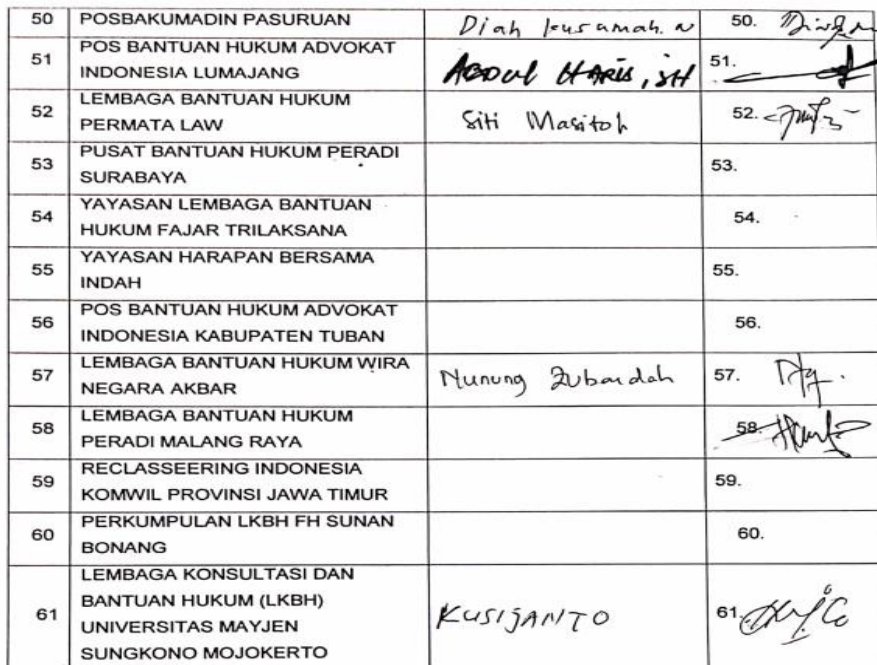 50 POSBAKUMADIN PASURUAN Diah kusamah. N 50.
51 POS BANTUAN HUKUM ADVOKAT INDONESIA LUMAJANG ABDUL HARIS, SH 51.
52 LEMBAGA BANTUAN HUKUM PERMATA LAW Siti Masitoh 52.
53 PUSAT BANTUAN HUKUM PERADI SURABAYA 53.
54 YAYASAN LEMBAGA BANTUAN HUKUM FAJAR TRILAKSANA 54.
55 YAYASAN HARAPAN BERSAMA INDAH 55.
56 POS BANTUAN HUKUM ADVOKAT INDONESIA KABUPATEN TUBAN 56.
57 LEMBAGA BANTUAN HUKUM WIRA NEGARA AKBAR Nunung Zubaidah 57.
58 LEMBAGA BANTUAN HUKUM PERADI MALANG RAYA 58.
59 RECLASSEERING INDONESIA KOMWIL PROVINSI JAWA TIMUR 59.
60 PERKUMPULAN LKBH FH SUNAN BONANG 60.
61 LEMBAGA KONSULTASI DAN BANTUAN HUKUM (LKBH) UNIVERSITAS MAYJEN SUNGKONO MOJOKERTO KUSIJANTO 61.